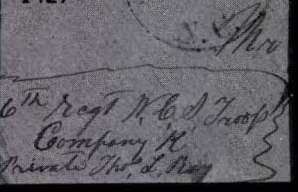 6th Regt N. C. S. Troops
Company K
Private Tho. L. Ray